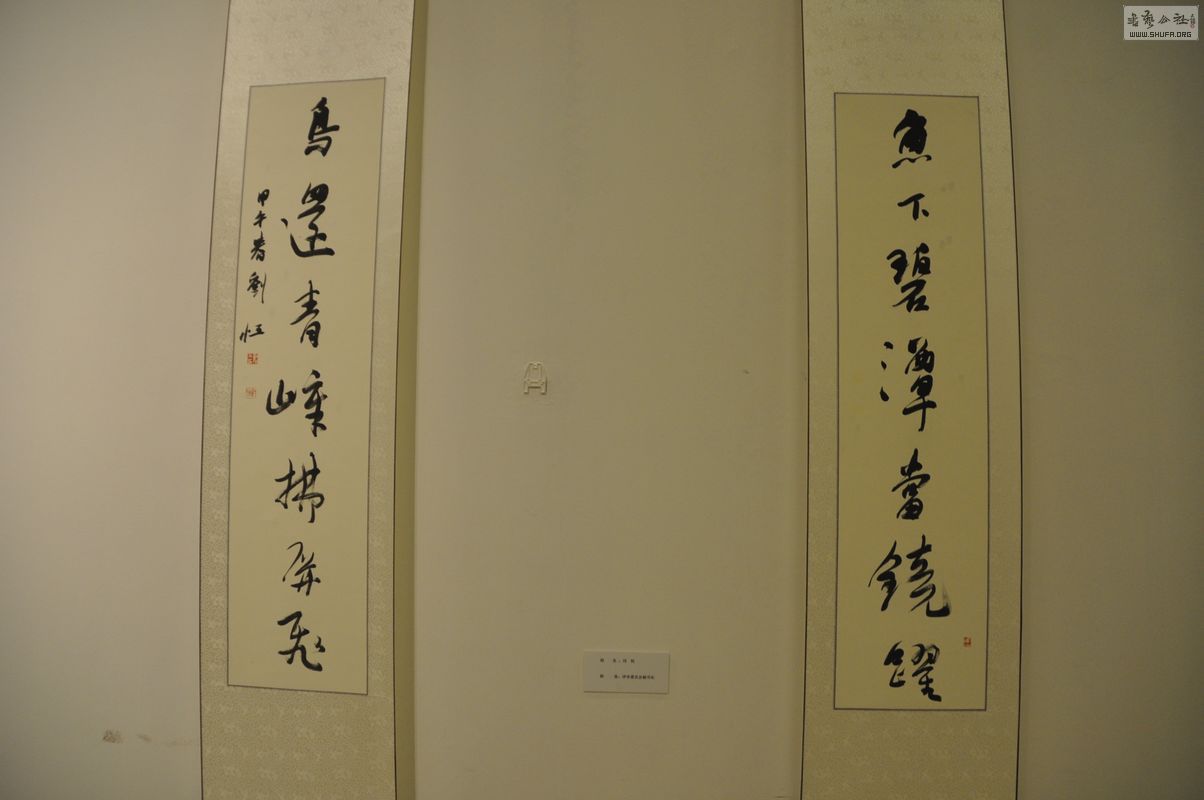 魚下碧潭當鏡躍
鳥還青嶂拂屏飛
甲午春劉恒
WWW.SHUFA.ORG